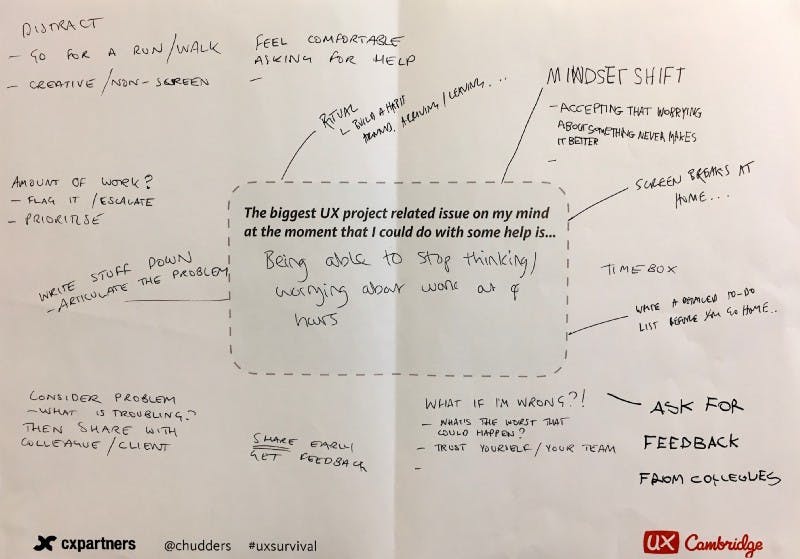 DISTRACT
- GO FOR A RUN/WALK
- CREATIVE/NON-SCREEN
FEEL COMFORTABLE
ASKING FOR HELP
-
RITUAL
BUILD A HABIT
AROUND ARRIVING/LEAVING...
MINDSET SHIFT
- ACCEPTING THAT WORRYING
ABOUT SOMETHING NEVER MAKES
IT BETTER
-
AMOUNT OF WORK?
- FLAG IT/ESCALATE
- PRIORITISE
SCREEN BREAKS AT
HOME...
The biggest UX project related issue on my mind
at the moment that I could do with some help is...
Being able to stop thinking/
worrying about work at
hours
WRITE STUFF DOWN
- ARTICULATE THE PROBLEM
TIMEBOX
WRITE A DETAILED TO-DO
LIST BEFORE YOU GO HOME..
CONSIDER PROBLEM
- WHAT IS TROUBLING?
THEN SHARE WITH
COLLEAGUE/CLIENT
SHARE EARLY
GET FEEDBACK
WHAT IF I'M WRONG?!
- WHAT'S THE WORST THAT
COULD HAPPEN?
- TRUST YOURSELF/YOUR TEAM
-
ASK FOR
FEEDBACK
FROM COLLEGUES
cxpartners @chudders #uxsurvival
UX Cambridge